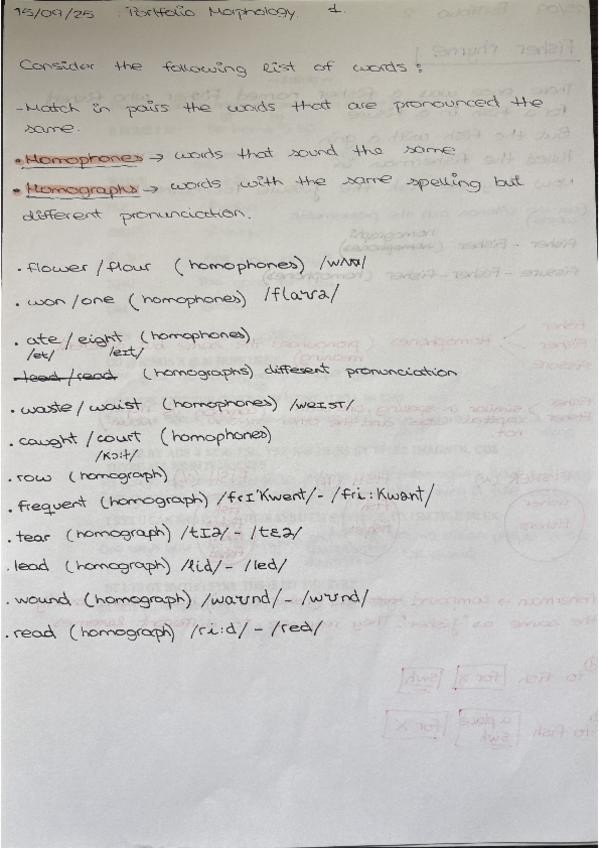 15/09/25 Portfolio Morphology. 1.
Consider the following list of words:
-Match in pairs the words that are pronounced the
same.
• Homophones → words that sound the same
• Homographs → words with the same spelling but
different pronunciation.
• flower/flour (homophones)
• won/one (homophones) /flaʊə/
• ate/eight (homophones)
/et/ /eɪt/
lead/read (homographs) different pronunciation
• waste/waist (homophones) /weɪst/
• caught/court (homophones)
/kɔ:t/
• row (homograph)
• frequent (homograph) /frɪ'kwent/-/fri:kwənt/
• tear (homograph) /tɪə/-/tɛə/
• lead (homograph) /lid/-/led/
• wound (homograph) /waʊnd/-/wʊnd/
• read (homograph) /ri:d/-/red/